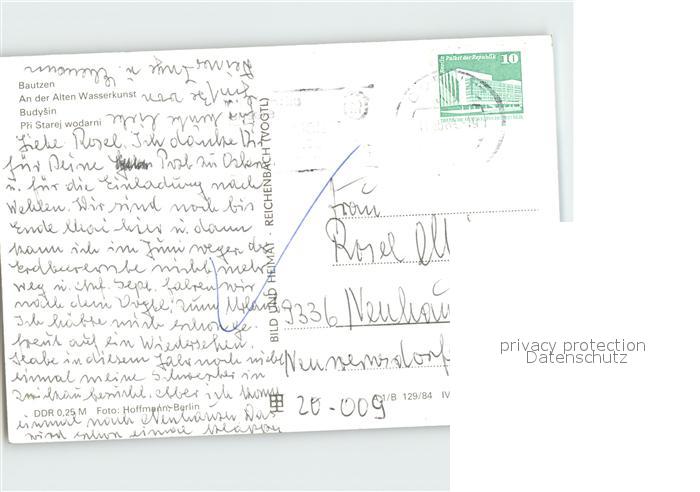 Bautzen
An der Alten Wasserkunst
Budyšin
Při Starej wodarni
Liebe Rosel. Ich danke Dir
für Deine Post zu Ostern
u. für die Einladung nach
Wehlen. Wir sind noch bis
Ende Mai hier u. dann
kann ich im Juni wegen der
Erdbeerernte nicht mehr
weg u. Sept. fahren wir
nach dem Vogtl. zum Urlaub
Ich hätte mich schon ge
freut auf ein Wiedersehen.
Habe in diesem Jahr noch nicht
einmal meine Schwester in
Zwickau besucht. Aber ich komme
einmal nach Neuhausen Das
wird schon einmal klappen
DDR 0,25 M Foto: Hoffmann, Berlin
BILD UND HEIMAT · REICHENBACH (VOGTL)
Palast der Republik
10
Frau
Rosel
9336 Neuhau
Neuwernsdorf
A 1/B 129/84 IV
20-009
privacy protection
Datenschutz